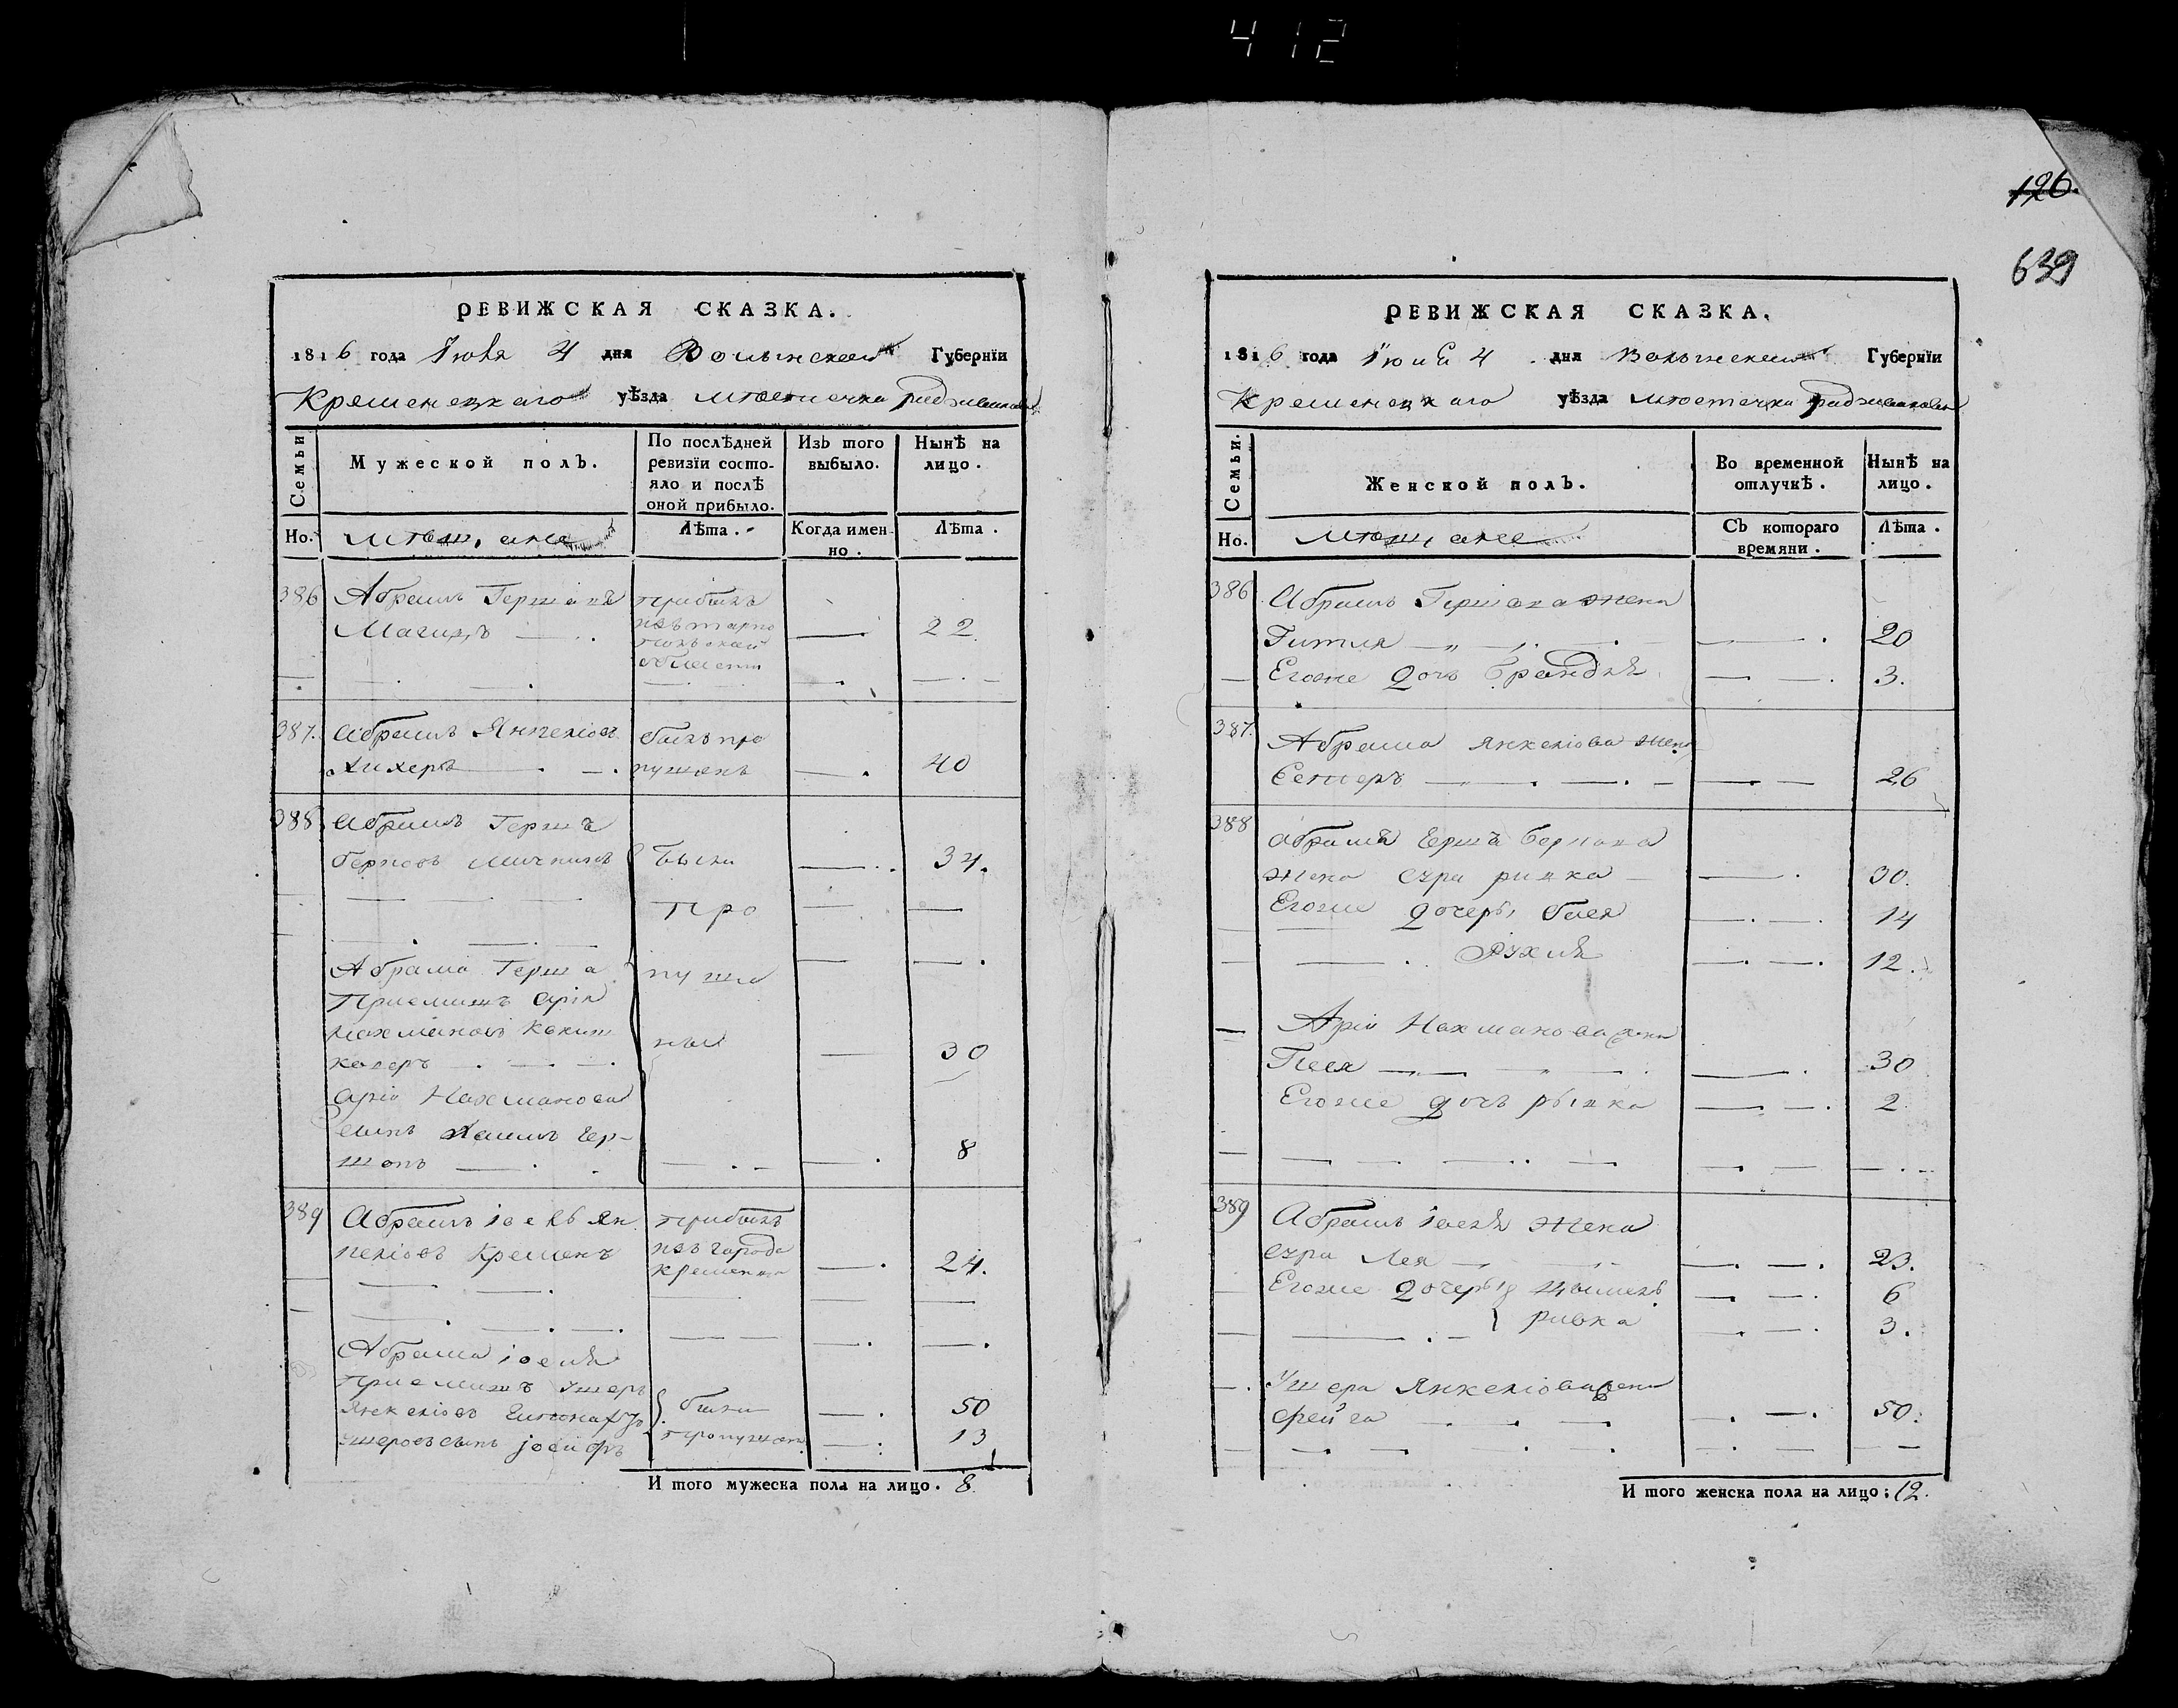 412
126.
639
РЕВИЖСКАЯ СКАЗКА.
1816 года Іюля 4 дня Волынской Губернїи
Кременецкаго уѣзда мѣстечка радзивилова
Семьи
Мужеской полъ.
По послѣдней ревизїи состо-
яло и послѣ оной прибыло.
Изъ того выбыло.
Нынѣ на лицо.
Но.
мѣщане
Лѣта.
Когда имен-
но.
Лѣта.
386 Абрамъ Гершона прибылъ
Магидъ изъ тарно 22
польской
области
387. Абрамъ Янкеліовъ былъ про
пущенъ 40
388 Абрамъ Гершъ
Берковъ были 34.
про
Абрама Герша пуще
Приемышъ Арія
Нахмановъ ны 30
Арія Нахманова
сынъ Хаимъ Гер-
шонъ 8
389 Абрамъ іоель Ян прибылъ
келіовъ Кременъ изъ города 24.
кременца
Абрама іоеля
Приемышъ Ушеръ
Янкеліовъ были 50
Ушеровъ сынъ пропущены 13
И того мужеска пола на лицо. 8.
РЕВИЖСКАЯ СКАЗКА.
1816 года Іюля 4 дня Волынской Губернїи
Кременецкаго уѣзда мѣстечка радзивилова
Семьи.
Женской полъ.
Во временной отлучкѣ.
Нынѣ на лицо.
Но.
мѣщане
Съ котораго времяни.
Лѣта.
386 Абрамъ Гершона жена
Гитля 20
Егоже дочь Брандля 3.
387. Абрама Янкеліова жена
Естеръ 26
388 Абрамъ Герша Беркова
жена сура ривка 30.
Егоже дочери бася 14
Рухля 12.
Арія Нахманова жена
Песя 30
Егоже дочь рывка 2.
389 Абрамъ іоеля жена
сура Лея 23.
Егоже дочеры 6
ривка 3.
Ушера Янкеліова жена
фейга 50.
И того женска пола на лицо; 12.